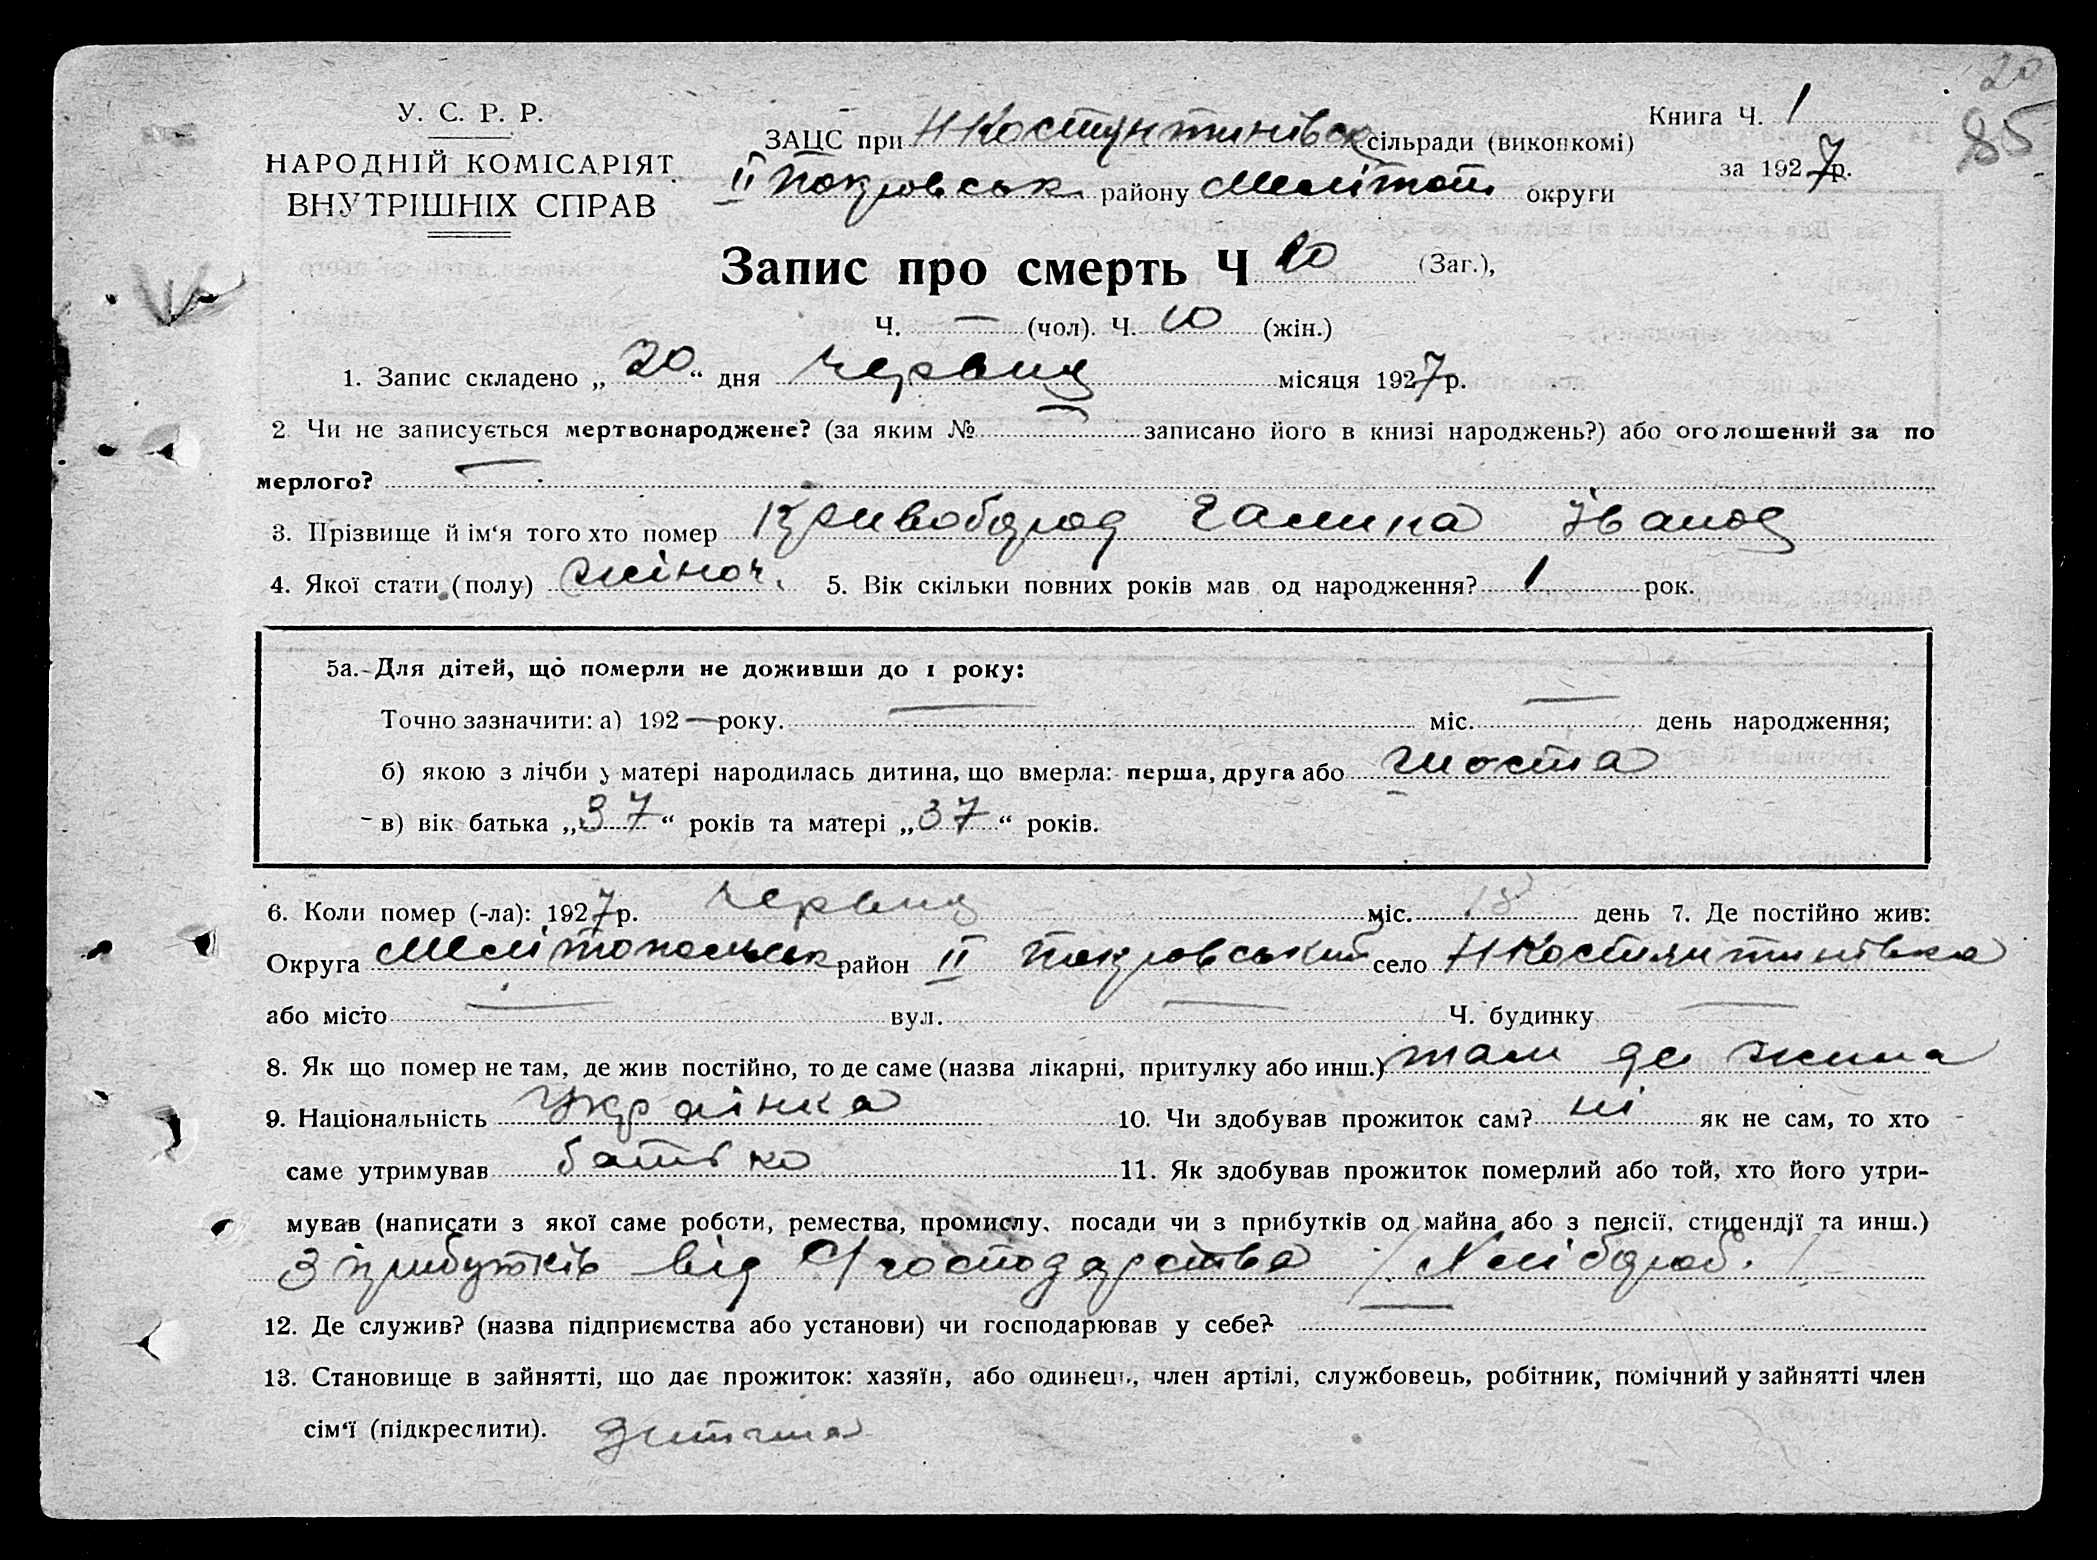 20
85
У. С. Р. Р.
НАРОДНІЙ КОМІСАРІЯТ
ВНУТРІШНІХ СПРАВ
Книга Ч. 1
за 1927р.
ЗАЦС при Н Костянтинівск сільради (виконкомі)
ІІ Покровськ. району Меліт округи
Запис про смерть Ч 20 (Заг.),
Ч. — (чол). Ч. 10 (жін.)
1. Запис складено „20“ дня Червня місяця 1927р.
2 Чи не записується мертвонароджене? (за яким № — записано його в книзі народжень?) або оголошений за по
мерлого? —
3. Прізвище й ім‘я того хто помер Кривобород Галина Іванов
4. Якої стати (полу) жіноч. 5. Вік скільки повних років мав од народження? 1 рок.
5а. Для дітей, що померли не доживши до 1 року:
Точно зазначити: а) 192 — року. — міс. — день народження;
б) якою з лічби у матері народилась дитина, що вмерла: перша, друга або шоста
в) вік батька „37“ років та матері „37“ років.
6. Коли помер (-ла): 1927р. Червня міс. 18 день 7. Де постійно жив:
Округа Мелітопольськ район ІІ Покровський село Н Костянтинівка
або місто — вул. — Ч. будинку —
8. Як що помер не там, де жив постійно, то де саме (назва лікарні, притулку або инш.) там де жила
9. Національність Українка 10. Чи здобував прожиток сам? ні як не сам, то хто
саме утримував батько 11. Як здобував прожиток померлий або той, хто його утри-
мував (написати з якої саме роботи, ремества, промислу, посади чи з прибутків од майна або з пенсії, стипендії та инш.)
З прибутків від С/господарства / Хлібороб. /
12. Де служив? (назва підприємства або установи) чи господарював у себе? —
13. Становище в зайнятті, що дає прожиток: хазяїн, або одинець, член артілі, службовець, робітник, помічний у зайнятті член
сім‘ї (підкреслити). Дитина